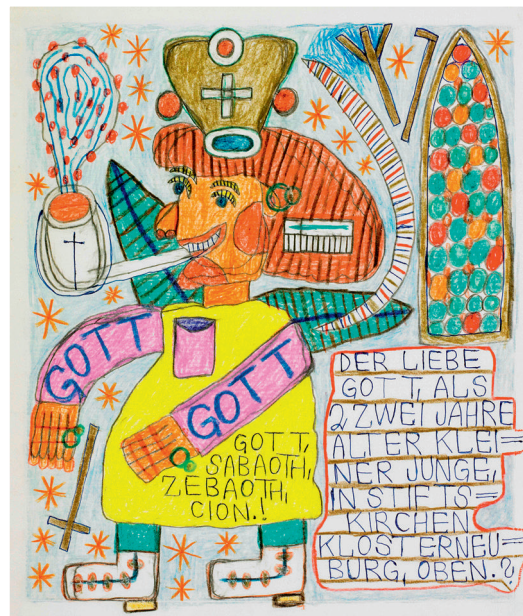 GOTT
GOTT
GOTT,
SABAOTH,
ZEBAOTH,
CION.!
DER LIEBE
GOTT, ALS
2 ZWEI JAHRE
ALTER KLEI=
NER JUNGE,
IN STIFTS=
KIRCHEN
KLOSTERNEU=
BURG, OBEN.?